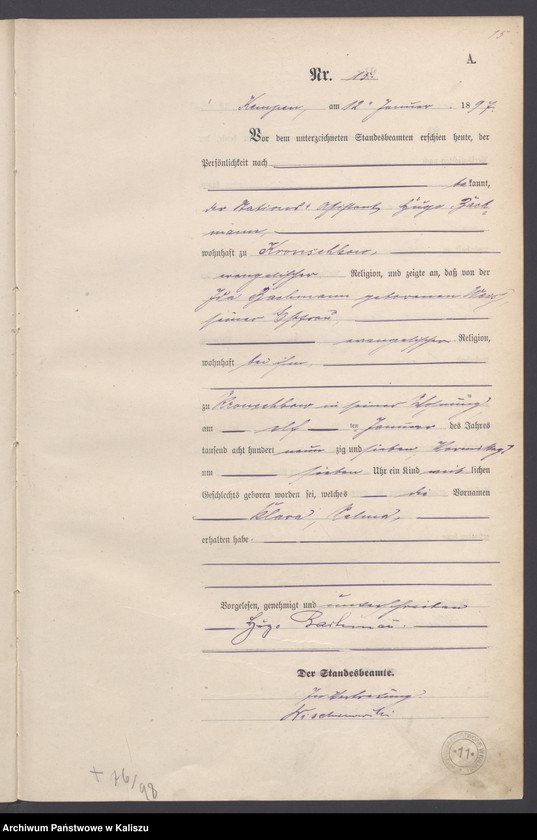 15
A.
Nr. 15.
Kempen, am 12. Januar 1897.
Vor dem unterzeichneten Standesbeamten erschien heute, der
Persönlichkeit nach
bekannt,
der Stations-Assistent Hugo Bach-
mann,
wohnhaft zu Kronschkow,
evangelischer Religion, und zeigte an, daß von der
Ida Bachmann geborenen
seiner Ehefrau
evangelischer Religion,
wohnhaft bei ihm,
zu Kronschkow in seiner Wohnung
am elf ten Januar des Jahres
tausend acht hundert neun zig und sieben Vormittags
um sieben Uhr ein Kind weib lichen
Geschlechts geboren worden sei, welches die Vornamen
Klara, Selma,
erhalten habe.
Vorgelesen, genehmigt und unterschrieben
Hugo Bachmann.
Der Standesbeamte.
In Vertretung.
+ 76/98
*11*
Archiwum Państwowe w Kaliszu